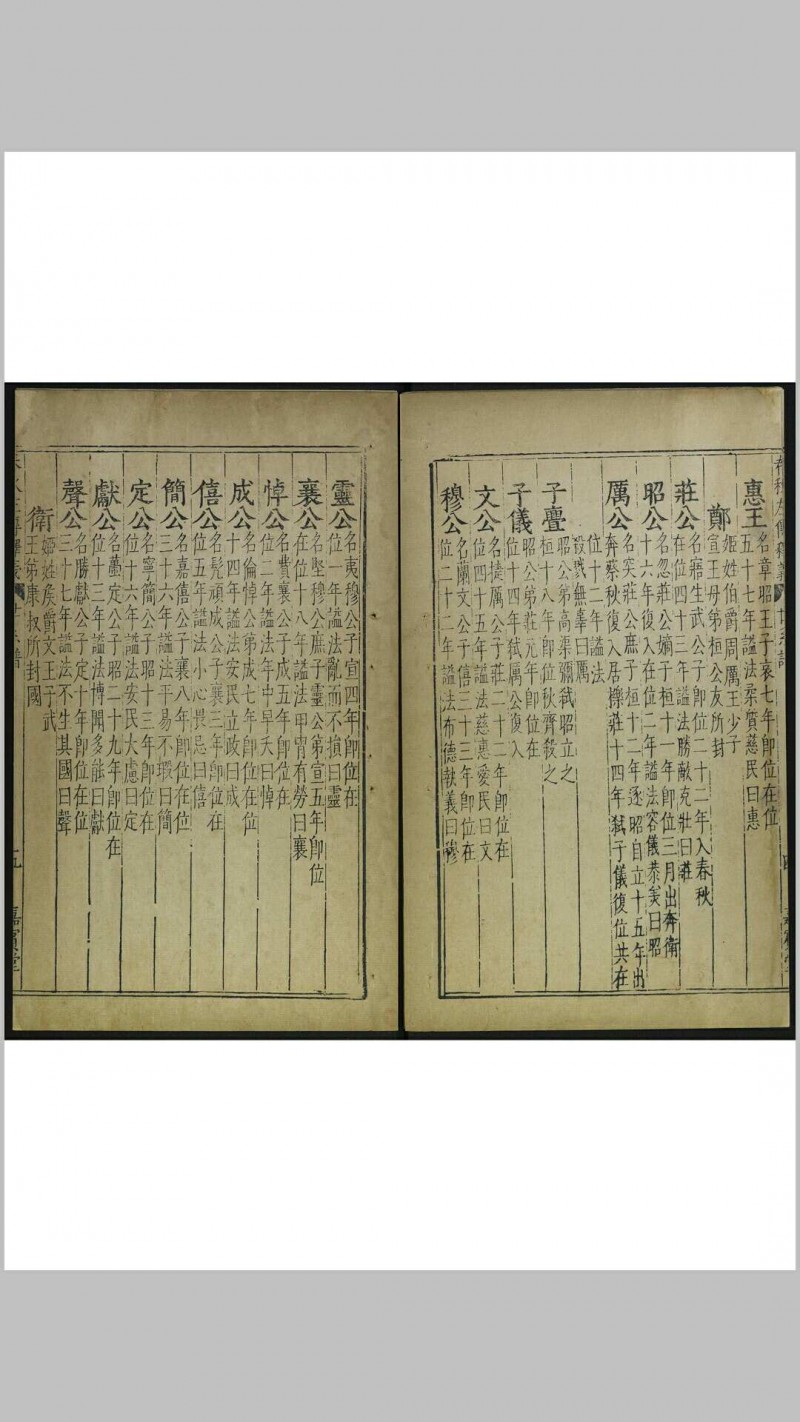 惠王名章昭王子哀七年即位在位
五十七年謚法柔質慈民曰惠
鄭姬姓伯爵周厲王少子
宣王母弟桓公友所封
莊公名寤生武公子即位二十二年入春秋
在位四十三年謚法勝敵克壯曰莊
昭公名忽莊公嫡子桓十一年即位三月出奔衛
十六年復入在位二年謚法容儀恭美曰昭
厲公名突莊公庶子桓十二年逐昭自立十五年出
奔蔡秋復入居櫟莊十四年弒子儀復位共在
位十二年謚法
殺戮無辜曰厲
子亹昭公弟高渠彌弒昭立之
桓十八年即位秋齊殺之
子儀昭公弟莊元年即位在
位十四年弒厲公復入
文公名捷厲公子莊二十二年即位在
位四十五年謚法慈惠愛民曰文
穆公名蘭文公子僖三十三年即位在
位二十二年謚法布德執義曰穆
靈公名夷穆公子宣四年即位在
位一年謚法亂而不損曰靈
襄公名堅穆公庶子靈公弟宣五年即位
在位十八年謚法甲冑有勞曰襄
悼公名費襄公子成五年即位在
位二年謚法年中早夭曰悼
成公名倫悼公弟成七年即位在位
十四年謚法安民立政曰成
僖公名髡頑成公子襄三年即位在
位五年謚法小心畏忌曰僖
簡公名嘉僖公子襄八年即位在位
三十六年謚法平易不瑕曰簡
定公名寧簡公子昭十三年即位在
位十六年謚法安民大慮曰定
獻公名躉定公子昭二十九年即位在
位十三年謚法博聞多能曰獻
聲公名勝獻公子定十年即位在位
三十七年謚法不生其國曰聲
衛姬姓侯爵文王子武
王弟康叔所封國
五
嘉賓堂